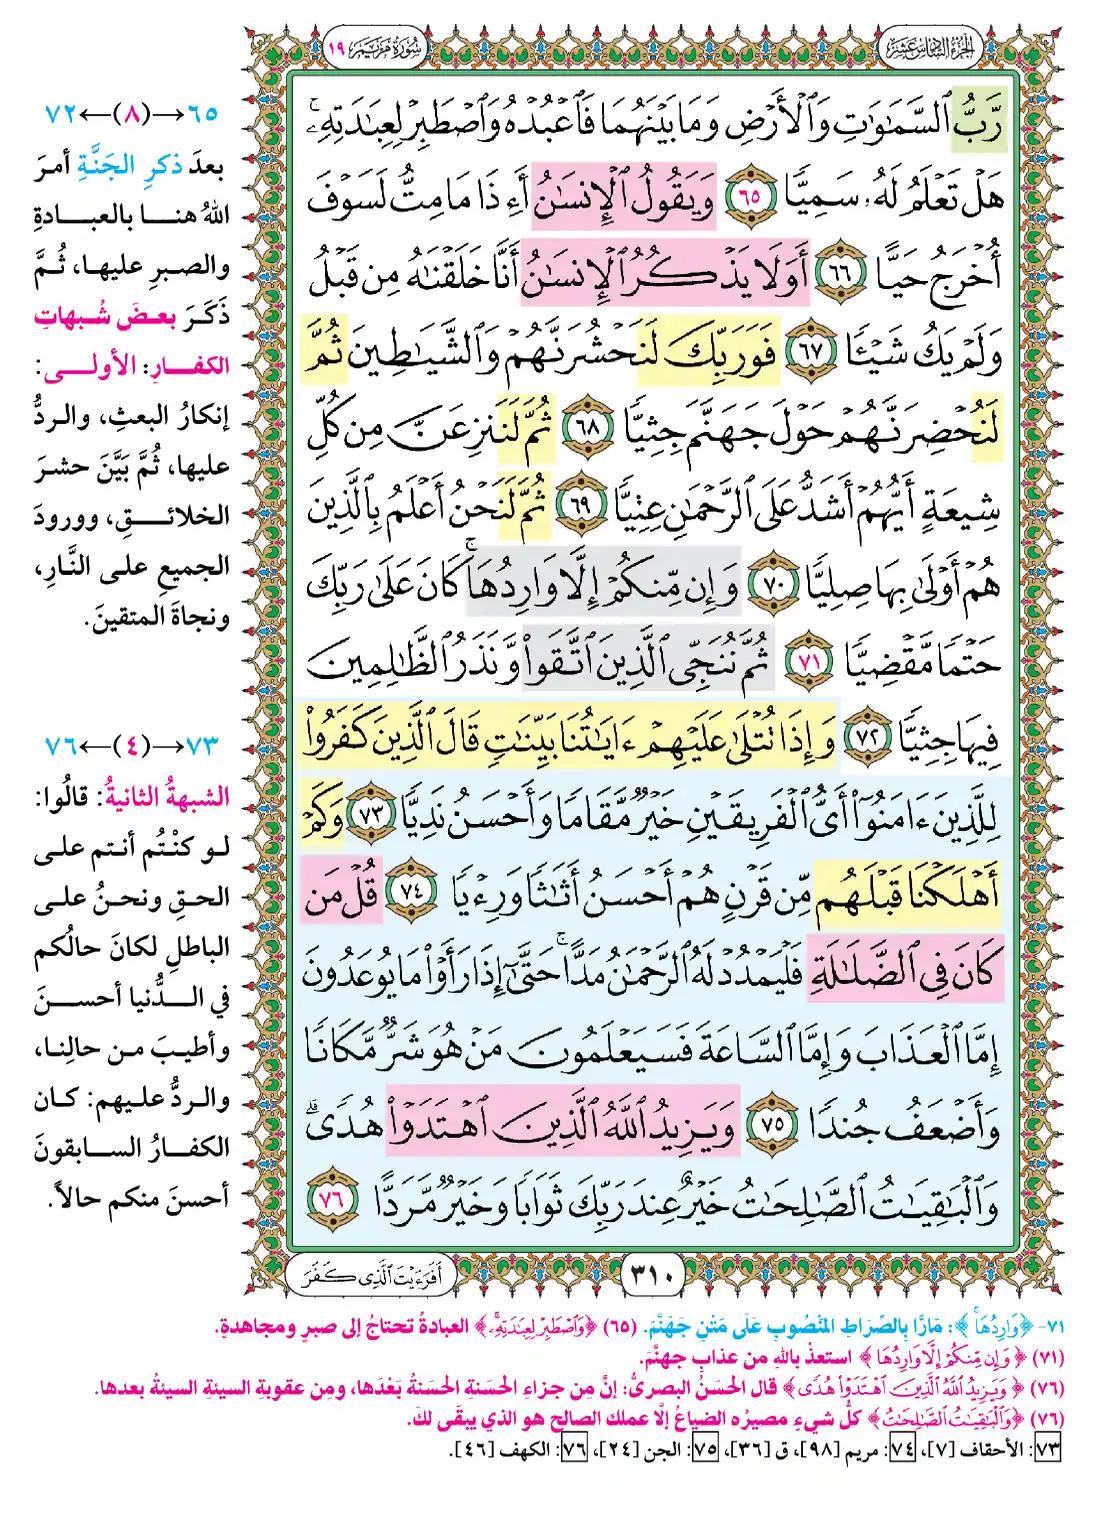 الجزء السادس عشر
سورة مريم ١٩
رَّبُّ ٱلسَّمَٰوَٰتِ وَٱلْأَرْضِ وَمَا بَيْنَهُمَا فَٱعْبُدْهُ وَٱصْطَبِرْ لِعِبَٰدَتِهِۦۚ
هَلْ تَعْلَمُ لَهُۥ سَمِيًّا ٦٥ وَيَقُولُ ٱلْإِنسَٰنُ أَءِذَا مَا مِتُّ لَسَوْفَ
أُخْرَجُ حَيًّا ٦٦ أَوَلَا يَذْكُرُ ٱلْإِنسَٰنُ أَنَّا خَلَقْنَٰهُ مِن قَبْلُ
وَلَمْ يَكُ شَيْـًٔا ٦٧ فَوَرَبِّكَ لَنَحْشُرَنَّهُمْ وَٱلشَّيَٰطِينَ ثُمَّ
لَنُحْضِرَنَّهُمْ حَوْلَ جَهَنَّمَ جِثِيًّا ٦٨ ثُمَّ لَنَنزِعَنَّ مِن كُلِّ
شِيعَةٍ أَيُّهُمْ أَشَدُّ عَلَى ٱلرَّحْمَٰنِ عِتِيًّا ٦٩ ثُمَّ لَنَحْنُ أَعْلَمُ بِٱلَّذِينَ
هُمْ أَوْلَىٰ بِهَا صِلِيًّا ٧٠ وَإِن مِّنكُمْ إِلَّا وَارِدُهَاۚ كَانَ عَلَىٰ رَبِّكَ
حَتْمًا مَّقْضِيًّا ٧١ ثُمَّ نُنَجِّى ٱلَّذِينَ ٱتَّقَوا۟ وَّنَذَرُ ٱلظَّٰلِمِينَ
فِيهَا جِثِيًّا ٧٢ وَإِذَا تُتْلَىٰ عَلَيْهِمْ ءَايَٰتُنَا بَيِّنَٰتٍ قَالَ ٱلَّذِينَ كَفَرُوا۟
لِلَّذِينَ ءَامَنُوٓا۟ أَىُّ ٱلْفَرِيقَيْنِ خَيْرٌ مَّقَامًا وَأَحْسَنُ نَدِيًّا ٧٣ وَكَمْ
أَهْلَكْنَا قَبْلَهُم مِّن قَرْنٍ هُمْ أَحْسَنُ أَثَٰثًا وَرِءْيًا ٧٤ قُلْ مَن
كَانَ فِى ٱلضَّلَٰلَةِ فَلْيَمْدُدْ لَهُ ٱلرَّحْمَٰنُ مَدًّاۚ حَتَّىٰٓ إِذَا رَأَوْا۟ مَا يُوعَدُونَ
إِمَّا ٱلْعَذَابَ وَإِمَّا ٱلسَّاعَةَ فَسَيَعْلَمُونَ مَنْ هُوَ شَرٌّ مَّكَانًا
وَأَضْعَفُ جُندًا ٧٥ وَيَزِيدُ ٱللَّهُ ٱلَّذِينَ ٱهْتَدَوْا۟ هُدًىۗ
وَٱلْبَٰقِيَٰتُ ٱلصَّٰلِحَٰتُ خَيْرٌ عِندَ رَبِّكَ ثَوَابًا وَخَيْرٌ مَّرَدًّا ٧٦
٣١٠
أَفَرَءَيْتَ ٱلَّذِى كَفَرَ
٦٥→(٨)←٧٢
بعدَ ذكرِ الجَنَّةِ أمرَ
اللهُ هنا بالعبادةِ
والصبرِ عليها، ثُمَّ
ذَكَرَ بعضَ شُبهاتِ
الكفارِ: الأولى:
إنكارُ البعثِ، والردُّ
عليها، ثُمَّ بَيَّنَ حشرَ
الخلائقِ، وورودَ
الجميعِ على النَّارِ،
ونجاةَ المتقينَ.
٧٣→(٤)←٧٦
الشبهةُ الثانيةُ: قالُوا:
لو كنْتُم أنتم على
الحقِ ونحنُ على
الباطلِ لكانَ حالُكم
في الدُّنيا أحسنَ
وأطيبَ من حالِنا،
والردُّ عليهم: كان
الكفارُ السابقونَ
أحسنَ منكم حالاً.
٧١- ﴿وَارِدُهَاۚ﴾: مَارًّا بِالصِّرَاطِ المَنْصُوبِ عَلَى مَتْنِ جَهَنَّمَ. (٦٥) ﴿وَٱصْطَبِرْ لِعِبَٰدَتِهِۦۚ﴾ العبادةُ تحتاجُ إلى صبرٍ ومجاهدةٍ.
(٧١) ﴿وَإِن مِّنكُمْ إِلَّا وَارِدُهَا﴾ استعذْ باللهِ من عذابِ جهنَّمَ.
(٧٦) ﴿وَيَزِيدُ ٱللَّهُ ٱلَّذِينَ ٱهْتَدَوْا۟ هُدًى﴾ قال الحَسَنُ البصريُّ: إنَّ مِن جزاءِ الحَسَنةِ الحَسَنةُ بَعْدَها، ومِن عقوبةِ السيئةِ السيئةُ بعدها.
(٧٦) ﴿وَٱلْبَٰقِيَٰتُ ٱلصَّٰلِحَٰتُ﴾ كلُّ شيءٍ مصيرُه الضياعُ إلَّا عملك الصالح هو الذي يبقَى لكَ.
٧٣: الأحقاف [٧]، ٧٤: مريم [٩٨]، ق [٣٦]، ٧٥: الجن [٢٤]، ٧٦: الكهف [٤٦].